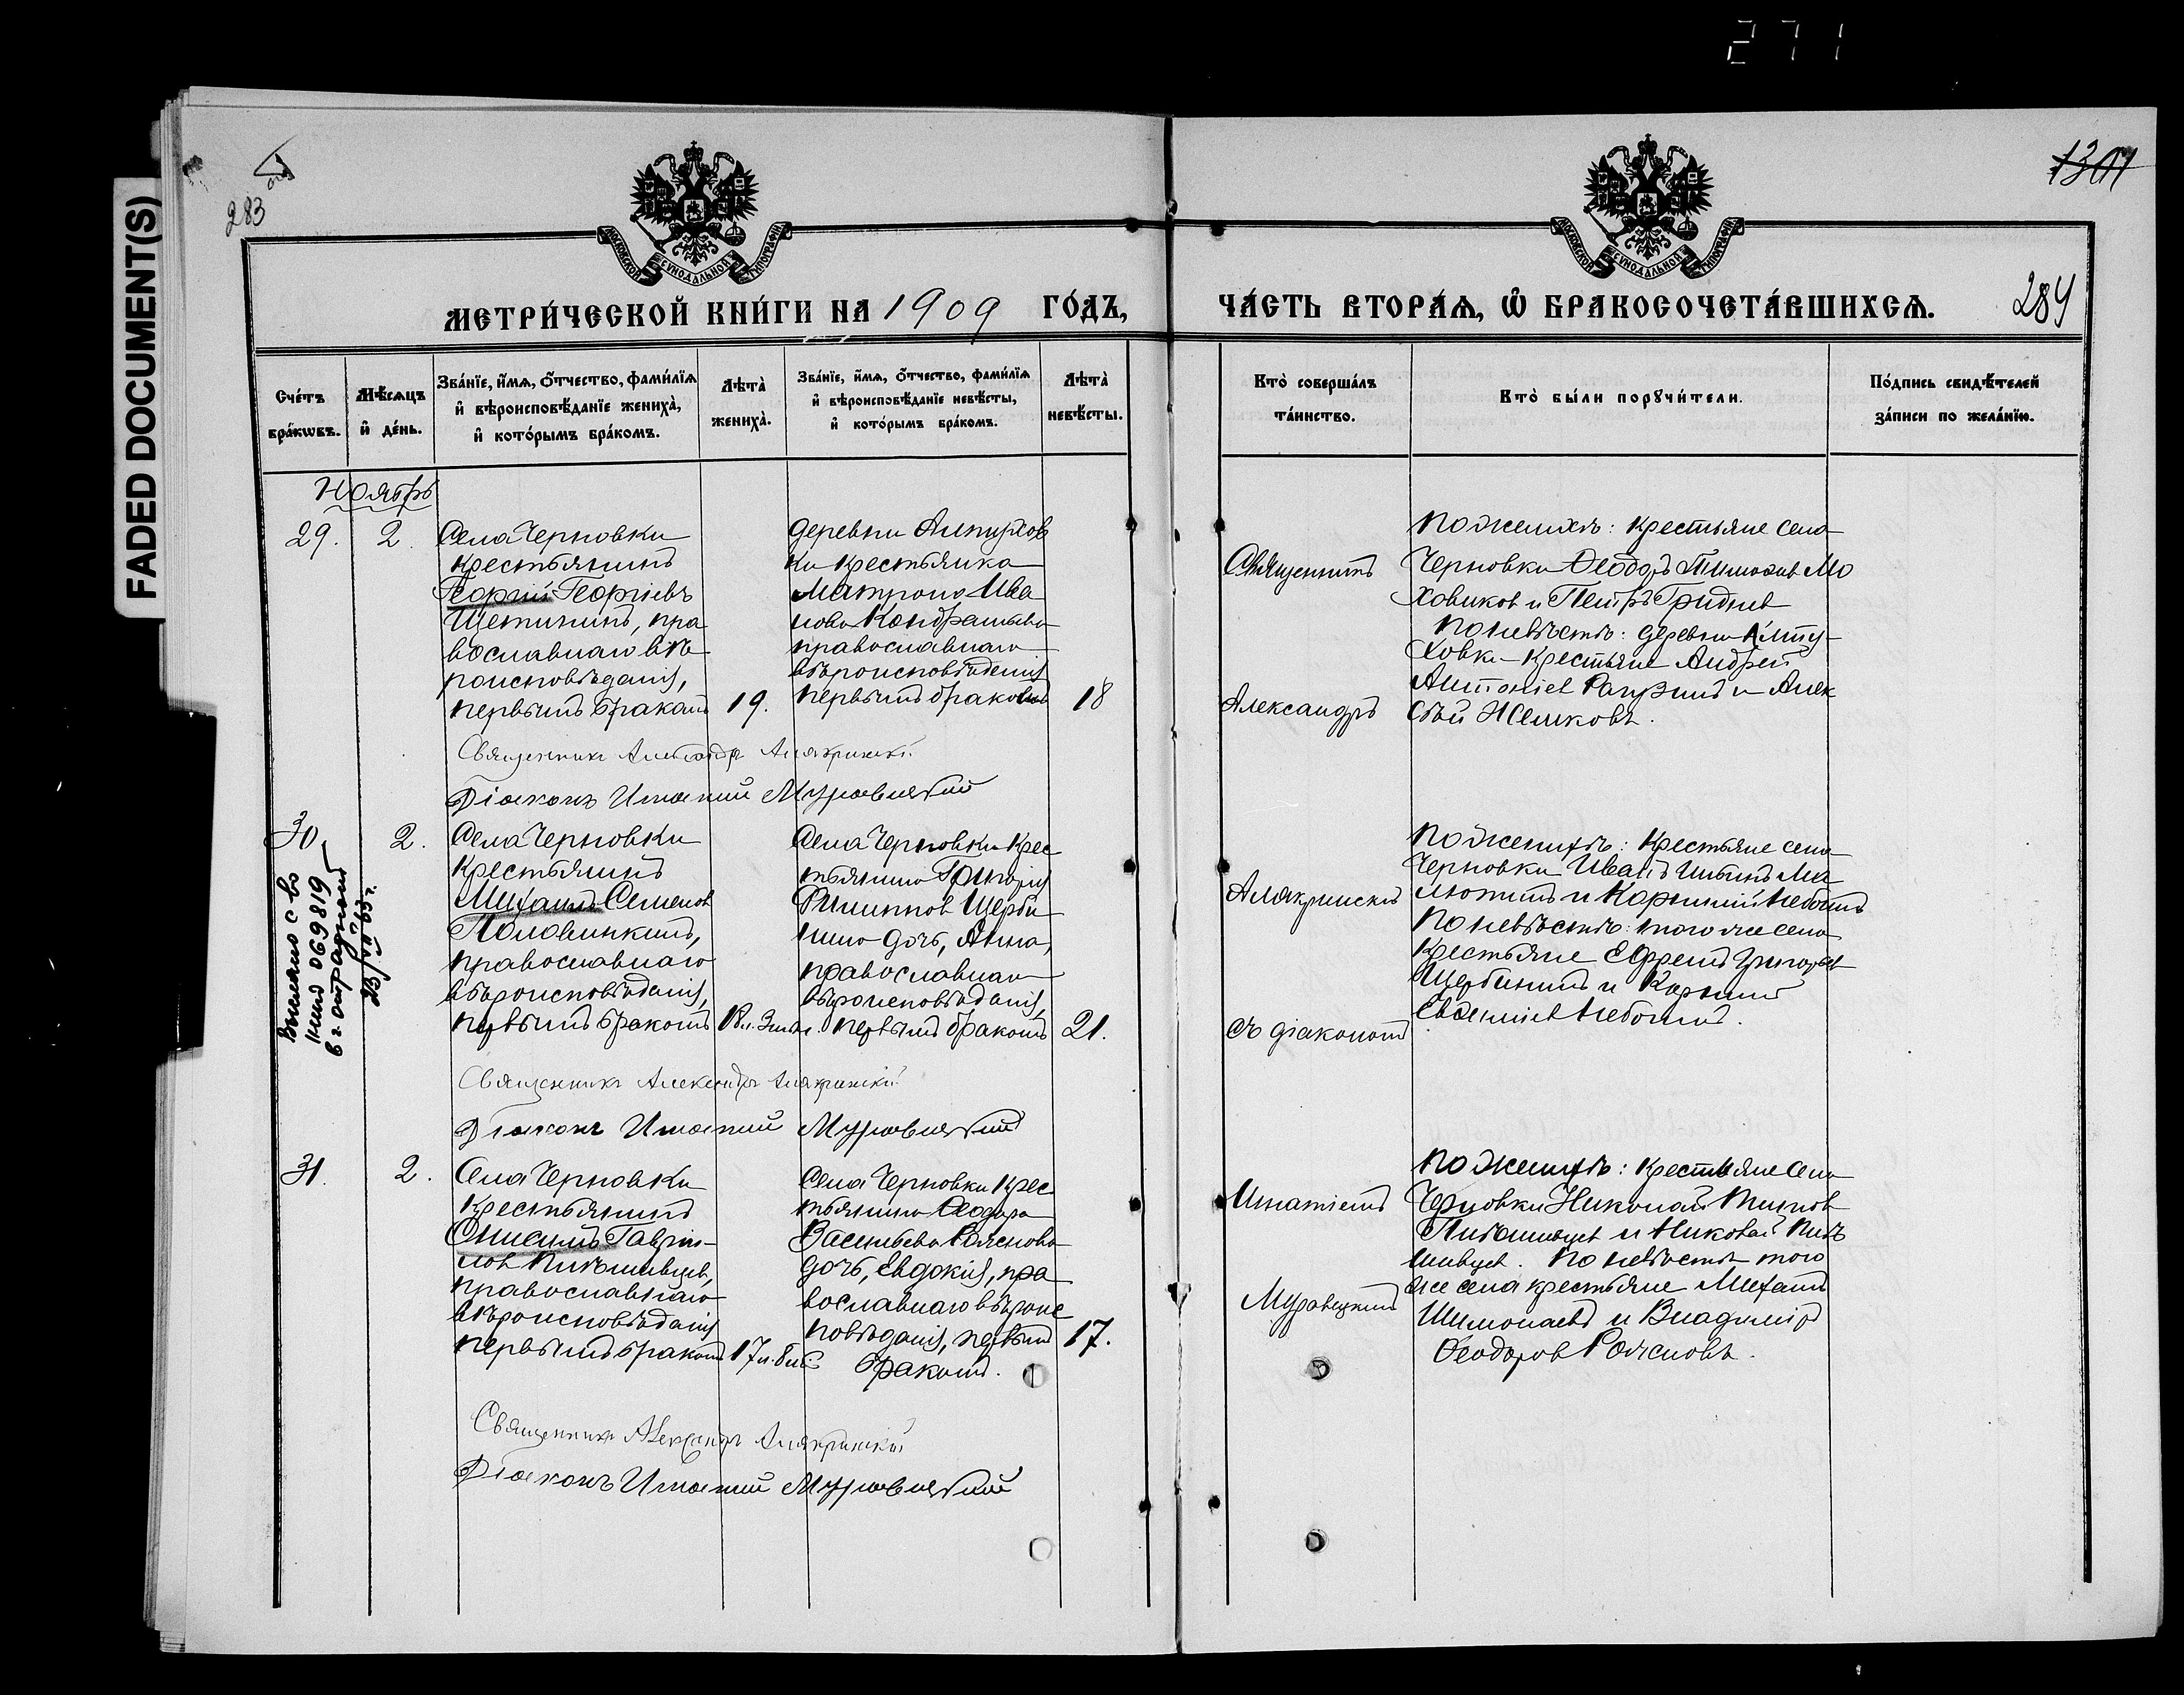 271
FADED DOCUMENT(S)
283
1301
МОСКОВСКОЙ СѴНОДАЛЬНОЙ ТИПОГРАФІИ
МОСКОВСКОЙ СѴНОДАЛЬНОЙ ТИПОГРАФІИ
МЕТРИ́ЧЕСКОЙ КНИ́ГИ НА 1909 ГО́ДЪ,
ЧА́СТЬ ВТОРА́Ѧ, Ѽ БРАКОСОЧЕТА́ВШИХСѦ.
284
Сче́тъ бра́кѡвъ.
Мѣ́сѧцъ и҆ де́нь.
Зва́нїе, и҆́мѧ, ѻ҆́тчество, фами́лїѧ и҆ вѣроисповѣ́данїе жениха̀, и҆ кото́рымъ бра́комъ.
Лѣта̀ жениха̀.
Зва́нїе, и҆́мѧ, ѻ҆́тчество, фами́лїѧ и҆ вѣроисповѣ́данїе невѣ́сты, и҆ кото́рымъ бра́комъ.
Лѣта̀ невѣ́сты.
Кто̀ соверша́лъ та́инство.
Кто̀ бы́ли порꙋчи́тели.
По́дпись свидѣ́телей за́писи по жела́нїю.
Ноябрь
29.
2.
Села Черновки
крестьянинъ
Георгій Георгіевъ
Щетининъ, пра
вославнаго вѣ
роисповѣданія,
первымъ бракомъ
19.
деревни Алтухов
ки крестьянка
Матрона Ива
нова Кондратьева
православнаго
вѣроисповѣданія
первымъ бракомъ
18
Священникъ
Александръ
По женихѣ: крестьяне села
Черновки Ѳеодоръ Тимоѳеев Мо
ховиков и Петръ Гриднев
По невѣстѣ: деревни Алту-
ховки крестьяне Андрей
Антоніев и Алек
сѣй
Священникъ Александръ Алякринскій
Діаконъ Игнатий Муравлецкий
30
2.
Села Черновки
крестьянинъ
Михаилъ Семенов
Половинкинъ,
православнаго
вѣроисповѣданія,
первымъ бракомъ
18 л. 3 мѣс.
Села Черновки крес
тьянина Григорія
Филиппов Щерби
нина дочь, Анна,
православнаго
вѣроисповѣданія,
первымъ бракомъ
21.
Алякринскій
съ діакономъ
По женихѣ: крестьяне села
Черновки Иванъ Ильинъ Ма
лютинъ и
По невѣстѣ: того же села
крестьяне Ефремъ Григорьев
Щербининъ и
Выписано с во
1 НИИ 069819
23/VII 63 г.
Священникъ Александръ Алякринскій
Діаконъ Игнатий Муравлецкий
31.
2.
Села Черновки
крестьянинъ
Онисимъ Гаври-
лов
православнаго
вѣроисповѣданія
первымъ бракомъ
17 л. 8 мѣс
Села Черновки крес
тьянина Ѳеодора
Васильева Рояснова
дочь, Евдокія, пра
вославнаго вѣроис
повѣданія, первымъ
бракомъ.
17.
Игнатіемъ
Муравецкимъ
По женихѣ: крестьяне села
Черновки Николай
и Николай
По невѣстѣ того
же села крестьяне Михаилъ
и Владиміръ
Ѳеодоров Роясновъ.
Священникъ Александръ Алякринскій
Діаконъ Игнатий Муравлецкий